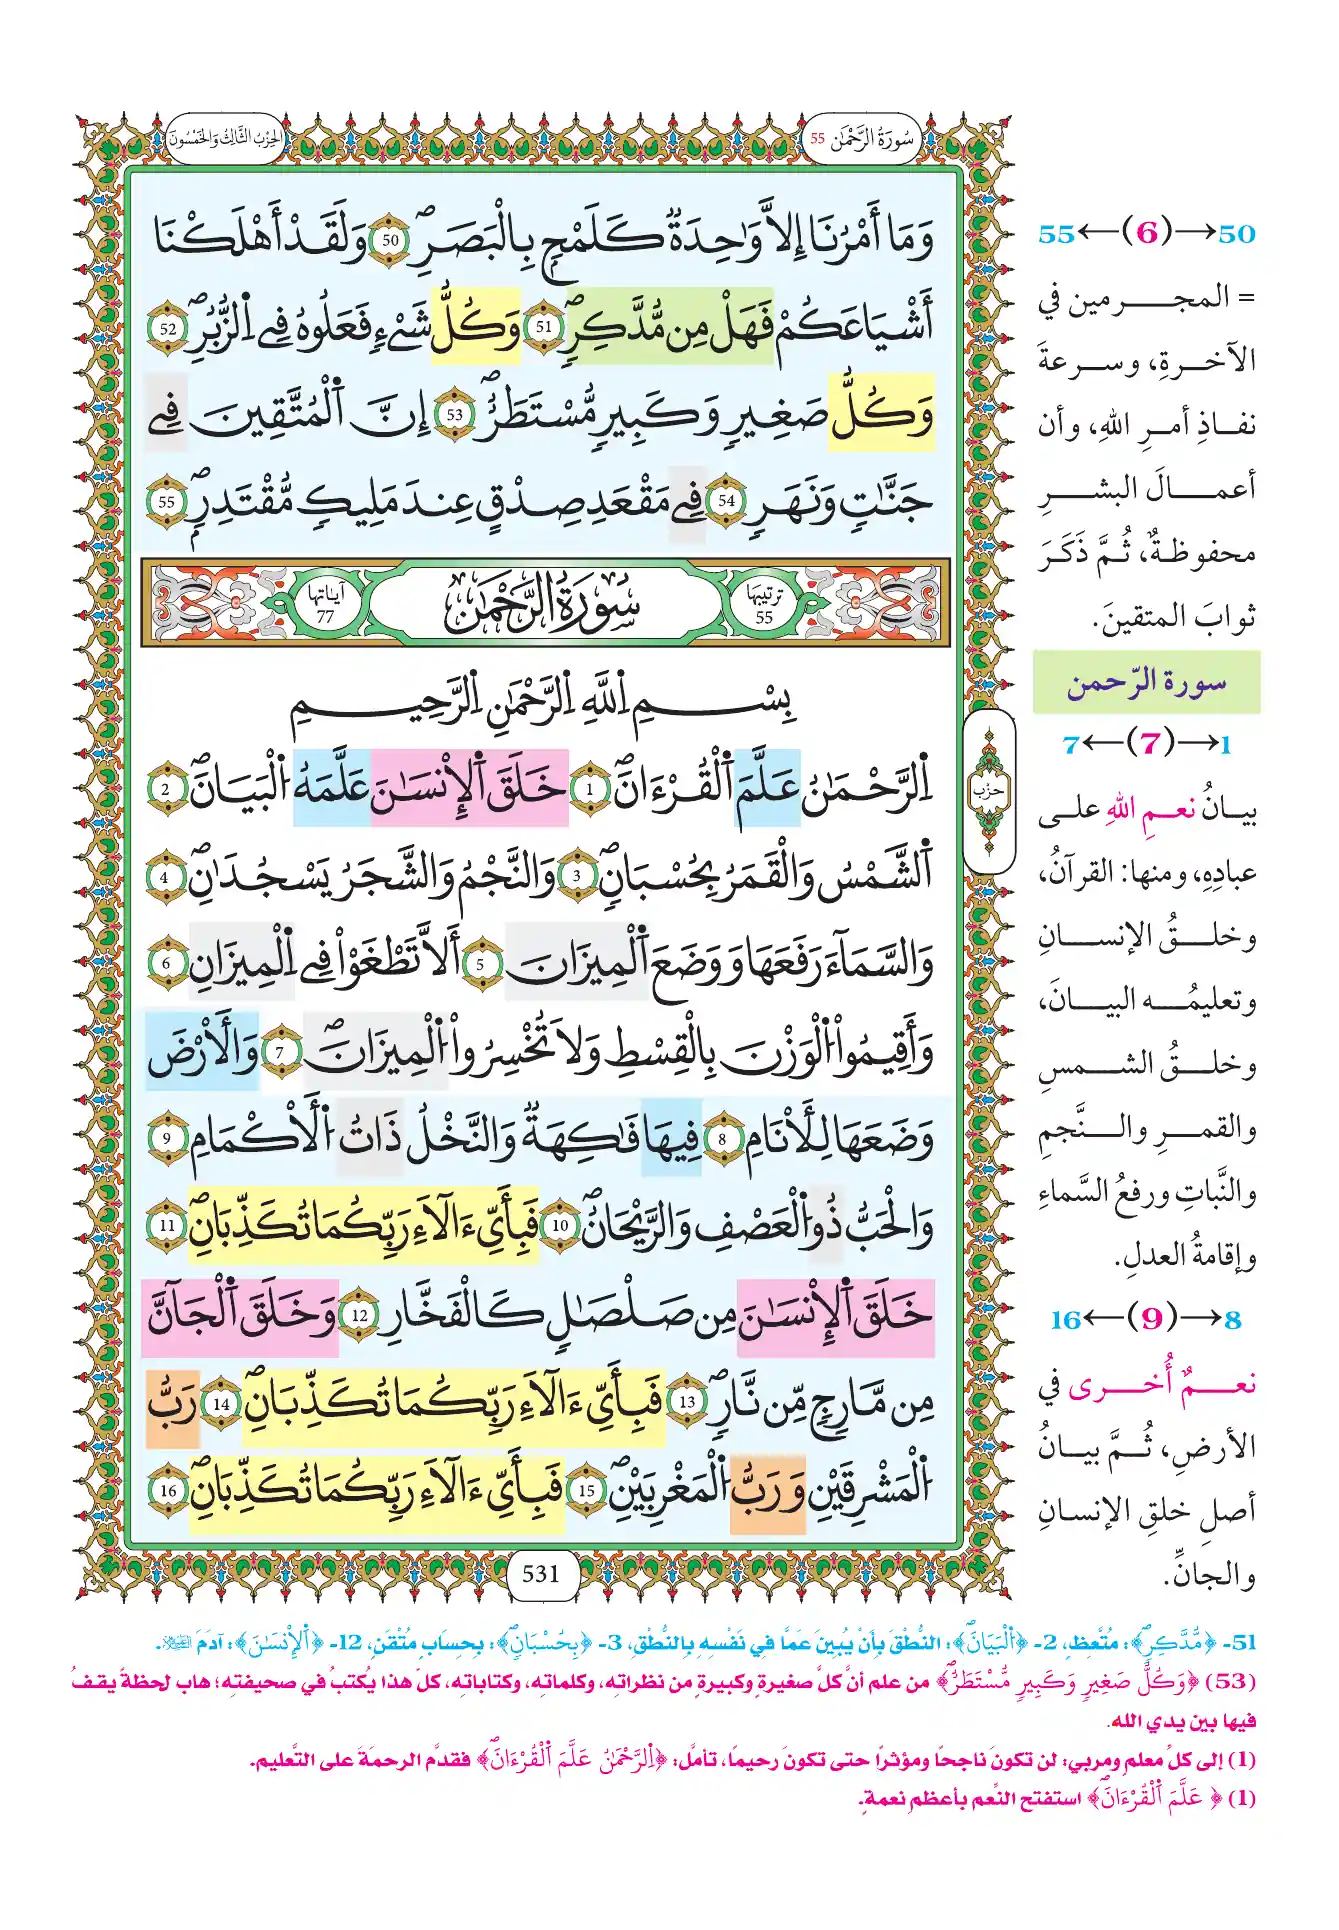 سُورَةُ الرَّحْمَٰن 55
الحِزْبُ الثَّالِثُ وَالخَمْسُونَ
وَمَا أَمْرُنَا إِلَّا وَٰحِدَةٌ كَلَمْحٍ بِالْبَصَرِ 50 وَلَقَدْ أَهْلَكْنَا
أَشْيَاعَكُمْ فَهَلْ مِن مُّدَّكِرٍ 51 وَكُلُّ شَےْءٍ فَعَلُوهُ فِے اِ۬لزُّبُرِ 52
وَكُلُّ صَغِيرٍ وَكَبِيرٍ مُّسْتَطَرٌ 53 إِنَّ اَ۬لْمُتَّقِينَ فِے
جَنَّٰتٍ وَنَهَرٍ 54 فِے مَقْعَدِ صِدْقٍ عِندَ مَلِيكٍ مُّقْتَدِرٍ 55
ترتيبها 55
سُورَةُ الرَّحْمَٰن
آياتها 77
بِسْمِ اِ۬للَّهِ اِ۬لرَّحْمَٰنِ اِ۬لرَّحِيمِ
اِ۬لرَّحْمَٰنُ عَلَّمَ اَ۬لْقُرْءَانَ 1 خَلَقَ اَ۬لْإِنْسَٰنَ عَلَّمَهُ اُ۬لْبَيَانَ 2
اَ۬لشَّمْسُ وَالْقَمَرُ بِحُسْبَانٍ 3 وَالنَّجْمُ وَالشَّجَرُ يَسْجُدَٰنِ 4
وَالسَّمَآءَ رَفَعَهَا وَوَضَعَ اَ۬لْمِيزَانَ 5 أَلَّا تَطْغَوْاْ فِے اِ۬لْمِيزَانِ 6
وَأَقِيمُواْ اُ۬لْوَزْنَ بِالْقِسْطِ وَلَا تُخْسِرُواْ اُ۬لْمِيزَانَ 7 وَالْأَرْضَ
وَضَعَهَا لِلْأَنَامِ 8 فِيهَا فَٰكِهَةٌ وَالنَّخْلُ ذَاتُ اُ۬لْأَكْمَامِ 9
وَالْحَبُّ ذُو اُ۬لْعَصْفِ وَالرَّيْحَانُ 10 فَبِأَيِّ ءَالَآءِ رَبِّكُمَا تُكَذِّبَانِ 11
خَلَقَ اَ۬لْإِنْسَٰنَ مِن صَلْصَٰلٍ كَالْفَخَّارِ 12 وَخَلَقَ اَ۬لْجَآنَّ
مِن مَّارِجٍ مِّن نَّارٍ 13 فَبِأَيِّ ءَالَآءِ رَبِّكُمَا تُكَذِّبَانِ 14 رَبُّ
اُ۬لْمَشْرِقَيْنِ وَرَبُّ اُ۬لْمَغْرِبَيْنِ 15 فَبِأَيِّ ءَالَآءِ رَبِّكُمَا تُكَذِّبَانِ 16
حزب
531
50→(6)←55
= المجرمين في
الآخرةِ، وسرعةَ
نفاذِ أمرِ اللهِ، وأن
أعمالَ البشرِ
محفوظةٌ، ثُمَّ ذَكَرَ
ثوابَ المتقينَ.
سورة الرّحمن
1→(7)←7
بيانُ نعمِ اللهِ على
عبادِهِ، ومنها: القرآنُ،
وخلقُ الإنسانِ
وتعليمُه البيانَ،
وخلقُ الشمسِ
والقمرِ والنَّجمِ
والنَّباتِ ورفعُ السَّماءِ
وإقامةُ العدلِ.
8→(9)←16
نعمٌ أُخرى في
الأرضِ، ثُمَّ بيانُ
أصلِ خلقِ الإنسانِ
والجانِّ.
51- ﴿مُّدَّكِرٍ﴾: مُتَّعِظٍ، 2- ﴿اَ۬لْبَيَانَ﴾: النُّطْقَ بِأَنْ يُبِينَ عَمَّا فِي نَفْسِهِ بِالنُّطْقِ، 3- ﴿بِحُسْبَانٍ﴾: بِحِسَابٍ مُتْقَنٍ، 12- ﴿اَ۬لْإِنْسَٰنَ﴾: آدَمَ عليه السلام.
(53) ﴿وَكُلُّ صَغِيرٍ وَكَبِيرٍ مُّسْتَطَرٌ﴾ من علم أنَّ كلَّ صغيرةٍ وكبيرةٍ من نظراته، وكلماته، وكتاباته، كلّ هذا يُكتبُ في صحيفته؛ هاب لحظةً يقفُ
فيها بين يدي الله.
(1) إلى كلِّ معلمٍ ومربي: لن تكونَ ناجحًا ومؤثرًا حتى تكونَ رحيمًا، تأمَّل: ﴿اِ۬لرَّحْمَٰنُ عَلَّمَ اَ۬لْقُرْءَانَ﴾ فقدَّم الرحمةَ على التَّعليم.
(1) ﴿ عَلَّمَ اَ۬لْقُرْءَانَ﴾ استفتح النِّعم بأعظمِ نعمةٍ.